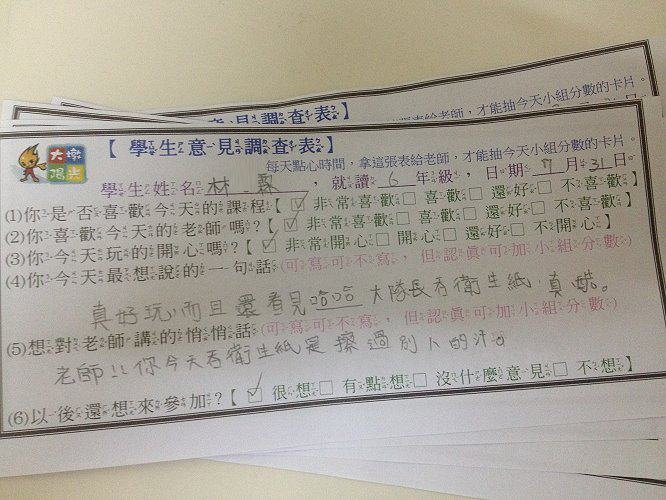 意見調查表】
才能抽今天小組分數的卡片。
大墩
陽光
【學生意見調查表】
每天點心時間，拿這張表給老師，才能抽今天小組分數的卡片。
學生姓名：林，就讀6年級，日期7月31日
(1)你是否喜歡今天的課程【☑非常喜歡□喜歡□還好□不喜歡】
(2)你喜歡今天的老師嗎?【☑非常喜歡□喜歡□還好□不喜歡】
(3)你今天玩的開心嗎?【☑非常開心□開心□還好□不開心】
(4)你今天最想說的一句話(可寫可不寫，但認真可加小組分數)
真好玩,而且還看見哈哈大隊長吞衛生紙,真酷。
(5)想對老師講的悄悄話(可寫可不寫，但認真可加小組分數)
老師!!你今天吞衛生紙是擦過別人的汗。
(6)以後還想來參加?【☑很想□有點想□沒什麼意見□不想】